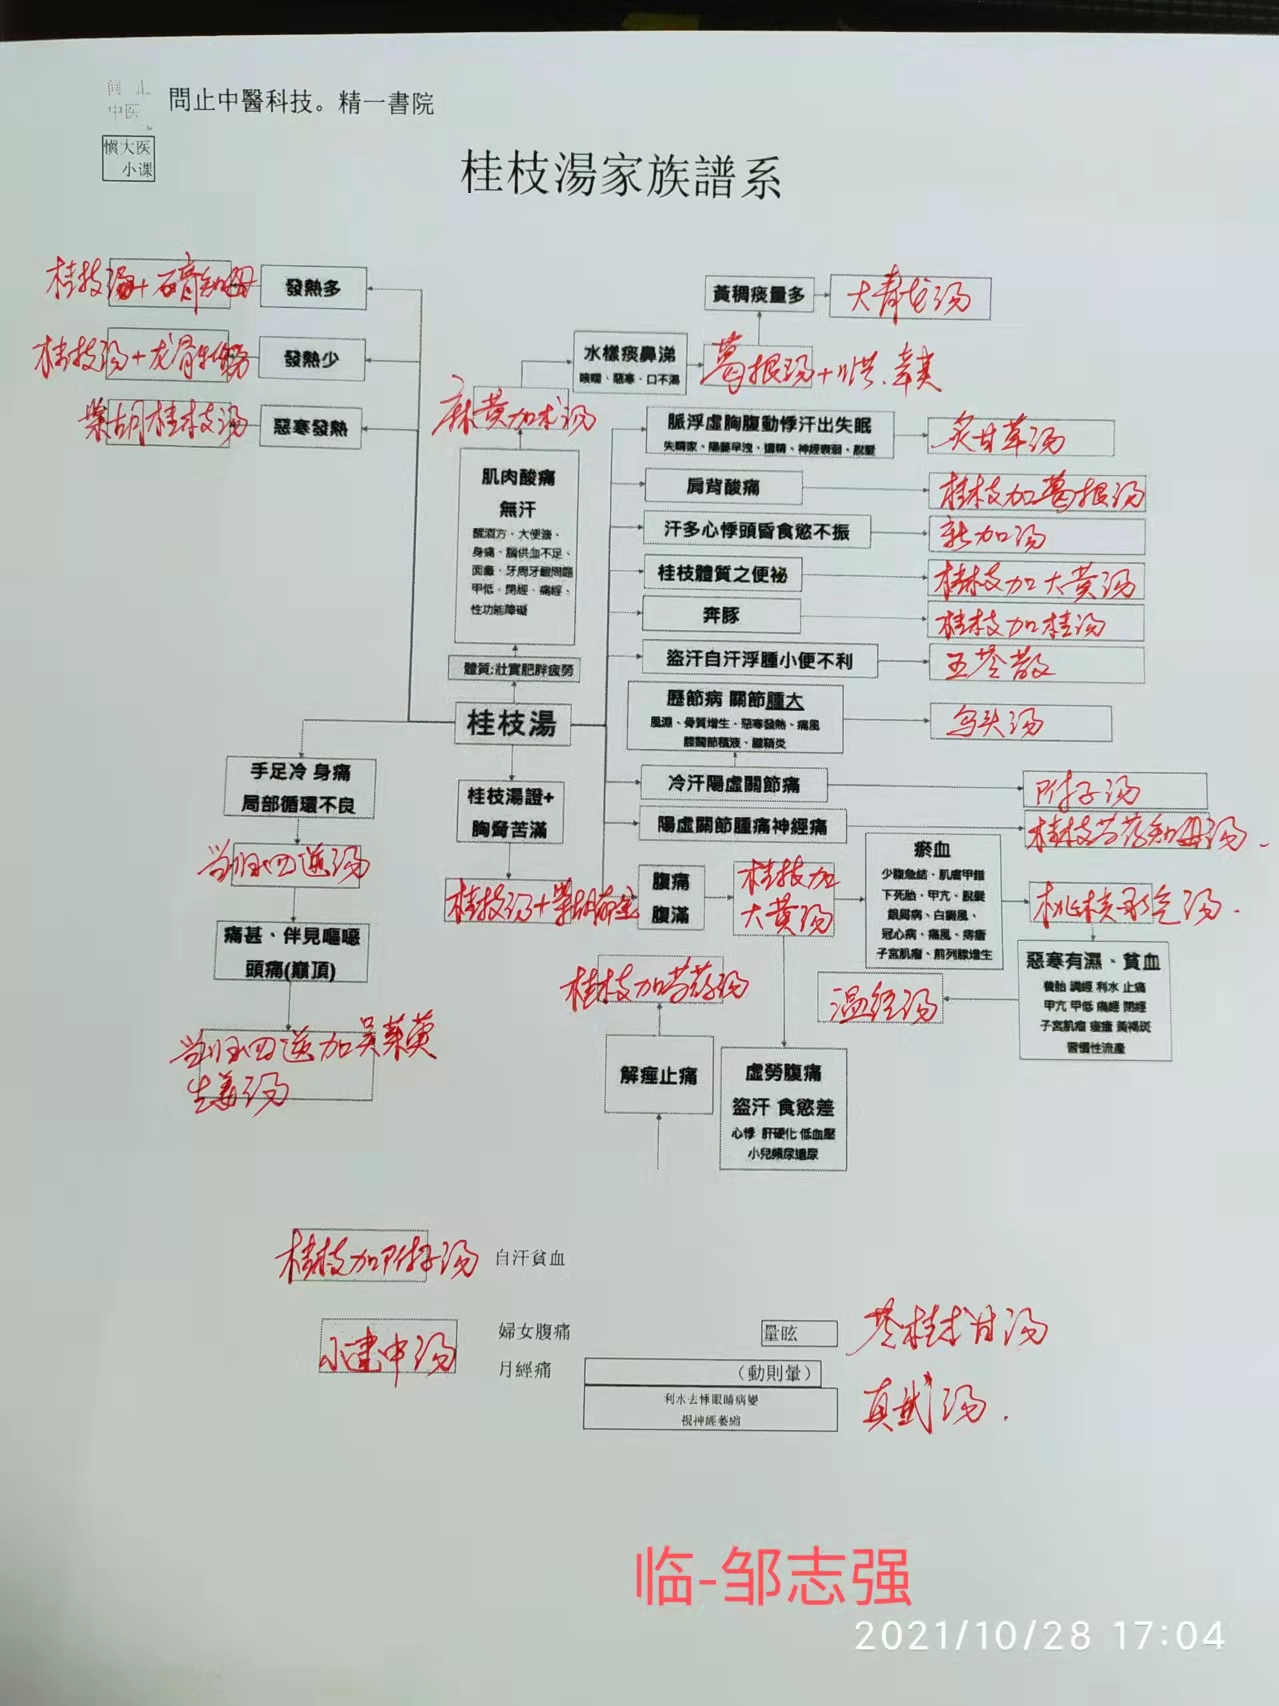 問止中醫科技。精一書院
慎大医
小课
桂枝湯家族譜系
桂枝汤+石膏知母
發熱多
桂枝汤+龙骨牡蛎
發熱少
柴胡桂枝汤
惡寒發熱
黃稠痰量多
大青龙汤
水樣痰鼻涕
咳喘、惡寒、口不渴
葛根汤+川芎.辛夷
麻黄加术汤
肌肉酸痛
無汗
醒酒方、大便溏、
身痛、腦供血不足、
面癱、牙周牙齦問題
甲低、閉經、痛經、
性功能障礙
體質:壯實肥胖疲勞
桂枝湯
脈浮虛胸腹動悸汗出失眠
失精家、陽萎早洩、遺精、神經衰弱、脫髮
炙甘草汤
肩背酸痛
桂枝加葛根汤
汗多心悸頭昏食慾不振
新加汤
桂枝體質之便祕
桂枝加大黄汤
奔豚
桂枝加桂汤
盜汗自汗浮腫小便不利
五苓散
歷節病 關節腫大
風濕、骨質增生、惡寒發熱、痛風
膝關節積液、腱鞘炎
乌头汤
冷汗陽虛關節痛
附子汤
陽虛關節腫痛神經痛
桂枝芍药知母汤.
手足冷 身痛
局部循環不良
当归四逆汤
痛甚、伴見嘔噁
頭痛(巔頂)
当归四逆加吴茱萸
生姜汤
桂枝湯證+
胸脅苦滿
桂枝汤+柴胡郁金
腹痛
腹滿
桂枝加
大黄汤
瘀血
少腹急結、肌膚甲錯
下死胎、甲亢、脫髮
銀屑病、白癜風、
冠心病、痛風、痔瘡
子宮肌瘤、前列腺增生
桃核承气汤.
惡寒有濕、貧血
養胎 調經 利水 止痛
甲亢 甲低 痛經 閉經
子宮肌瘤 痤瘡 黃褐斑
習慣性流產
温经汤
桂枝加芍药汤
解痙止痛
虛勞腹痛
盜汗 食慾差
心悸 肝硬化 低血壓
小兒頻尿遺尿
桂枝加附子汤
自汗貧血
小建中汤
婦女腹痛
月經痛
暈眩
苓桂术甘汤
（動則暈）
利水去悸眼睛病變
視神經萎縮
真武汤.
临-邹志强
2021/10/28 17:04